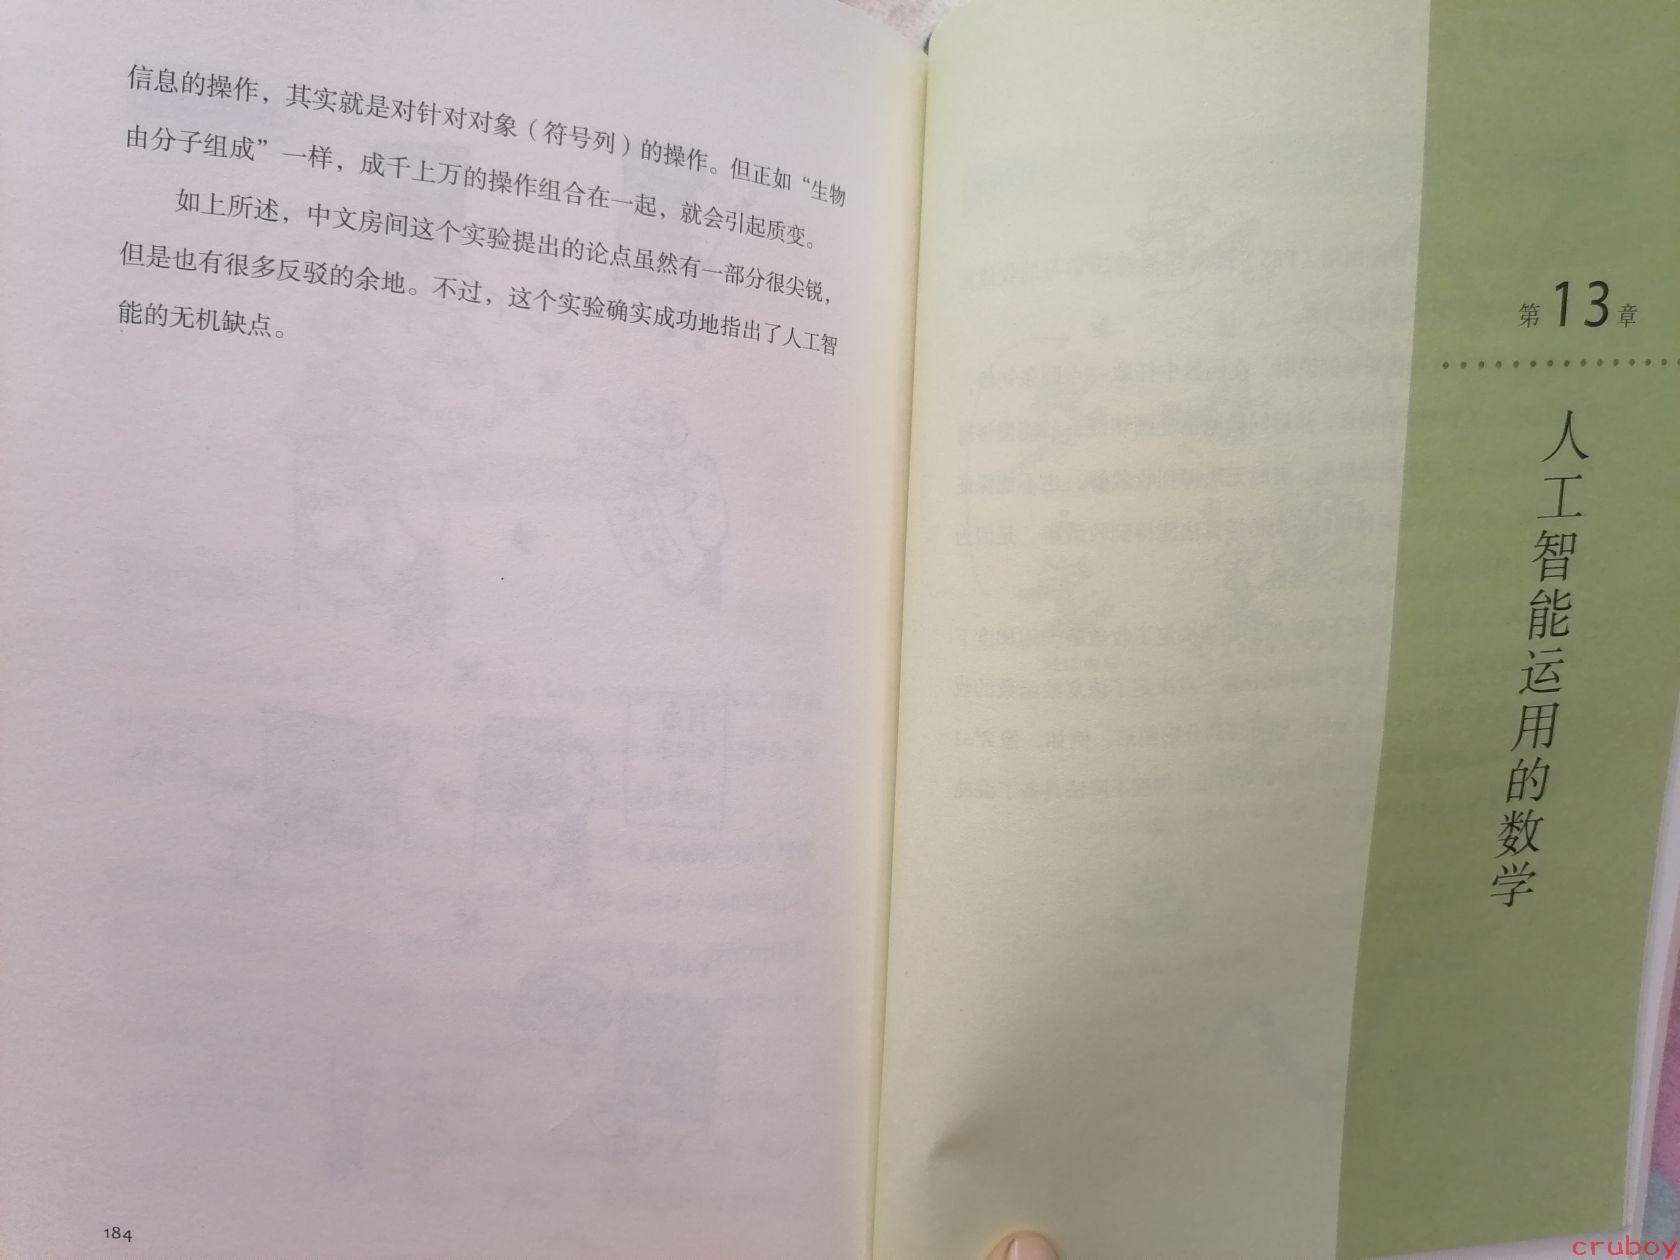 信息的操作，其实就是对针对对象（符号列）的操作。但正如“生物
由分子组成”一样，成千上万的操作组合在一起，就会引起质变。
如上所述，中文房间这个实验提出的论点虽然有一部分很尖锐，
但是也有很多反驳的余地。不过，这个实验确实成功地指出了人工智
能的无机缺点。
184
第13章
人工智能运用的数学
cruboy